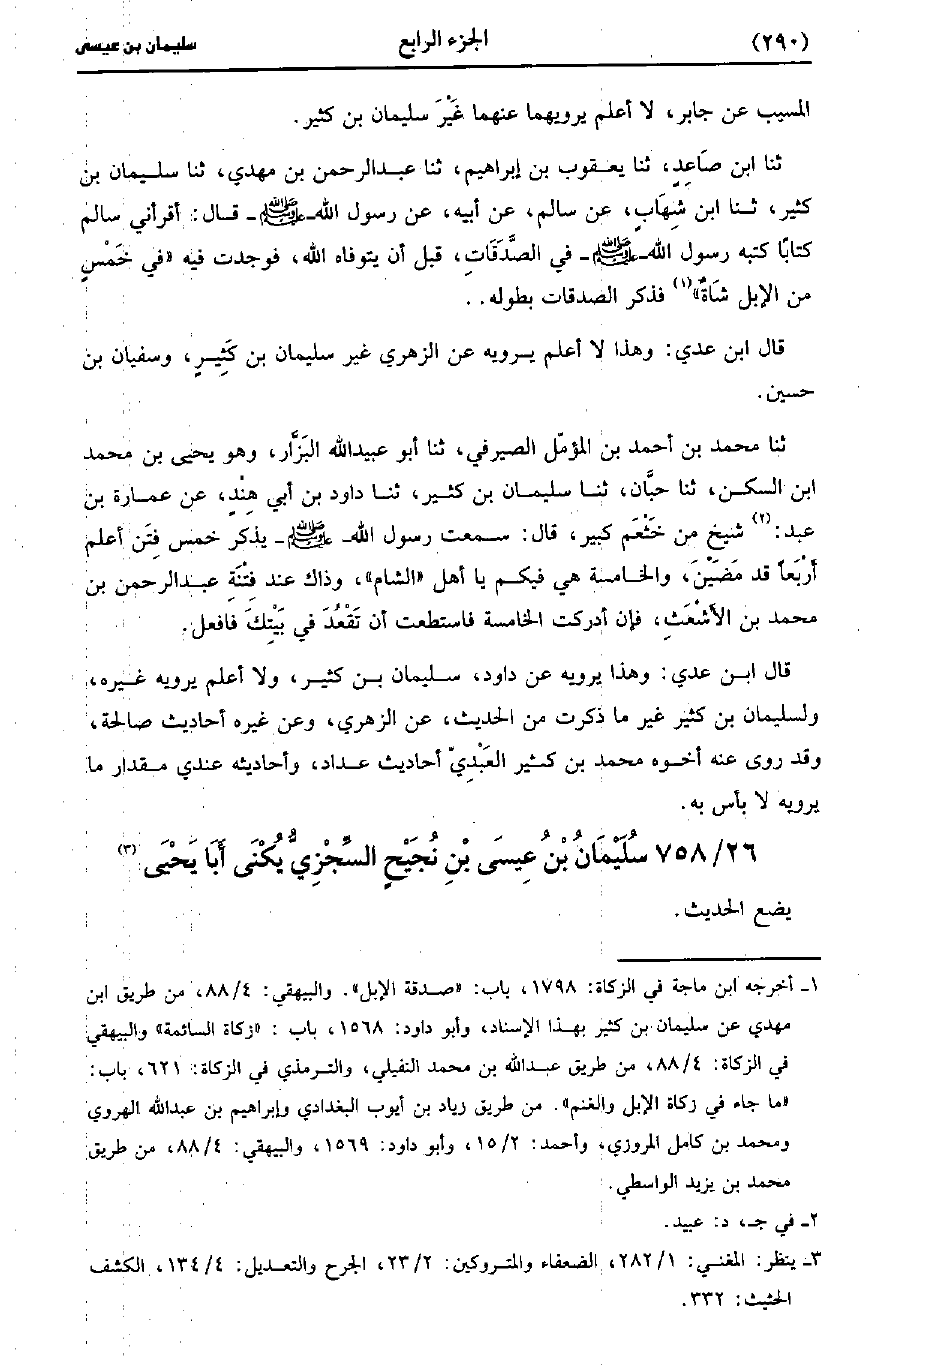 (٢٩٠) الجزء الرابع سليمان بن عيسى
المسيب عن جابر، لا أعلم يرويهما عنهما غَيْرَ سليمان بن كثير.
ثنا ابن صَاعِدٍ، ثنا يعقوب بن إبراهيم، ثنا عبدالرحمن بن مهدي، ثنا سليمان بن
كثير، ثنا ابن شِهَابٍ، عن سالم، عن أبيه، عن رسول الله ـ ﷺ ـ قال: أقرأني سالم
كتابًا كتبه رسول الله ـ ﷺ ـ في الصَّدَقَاتِ، قبل أن يتوفاه الله، فوجدت فيه «في خَمْسٍ
من الإبل شَاةٌ»(١) فذكر الصدقات بطوله. .
قال ابن عدي: وهذا لا أعلم يرويه عن الزهري غير سليمان بن كَثِيرٍ، وسفيان بن
حسين.
ثنا محمد بن أحمد بن المؤمّل الصيرفي، ثنا أبو عبيدالله البَزَّار، وهو يحيى بن محمد
ابن السكن، ثنا حبَّان، ثنا سليمان بن كثير، ثنا داود بن أبي هِنْدٍ، عن عمارة بن
عبد:(٢) شيخ من خَثْعَم كبير، قال: سمعت رسول الله ـ ﷺ ـ يذكر خمس فتَن أعلم
أَرْبَعاً قد مَضَيْنَ، والخامسة هي فيكم يا أهل «الشام»، وذاك عند فِتْنَةِ عبدالرحمن بن
محمد بن الأَشْعَثِ، فإن أدركت الخامسة فاستطعت أن تَقْعُدَ في بَيْتِكَ فافعل.
قال ابن عدي: وهذا يرويه عن داود، سليمان بن كثير، ولا أعلم يرويه غيره،
ولسليمان بن كثير غير ما ذكرت من الحديث، عن الزهري، وعن غيره أحاديث صالحة،
وقد روى عنه أخوه محمد بن كثير العَبْدِيّ أحاديث عداد، وأحاديثه عندي مقدار ما
يرويه لا بأس به.
٧٥٨/٢٦ سُلَيْمَانُ بْنُ عِيسَى بْنِ نُجَيْحٍ السِّجْزِيُّ يُكْنَى أَبَا يَحْيَى(٣)
يضع الحديث.
١ـ أخرجه ابن ماجة في الزكاة: ١٧٩٨، باب: «صدقة الإبل». والبيهقي: ٨٨/٤، من طريق ابن
مهدي عن سليمان بن كثير بهذا الإسناد، وأبو داود: ١٥٦٨، باب : «زكاة السائمة» والبيهقي
في الزكاة: ٨٨/٤، من طريق عبدالله بن محمد النفيلي، والترمذي في الزكاة: ٦٢١، باب:
«ما جاء في زكاة الإبل والغنم». من طريق زياد بن أيوب البغدادي وإبراهيم بن عبدالله الهروي
ومحمد بن كامل المروزي، وأحمد: ١٥/٢، وأبو داود: ١٥٦٩، والبيهقي: ٨٨/٤، من طريق
محمد بن يزيد الواسطي.
٢ـ في جـ، د: عبيد.
٣ـ ينظر: المغني: ٢٨٢/١، الضعفاء والمتروكين: ٢٣/٢، الجرح والتعديل: ١٣٤/٤، الكشف
الحثيث: ٣٣٢.